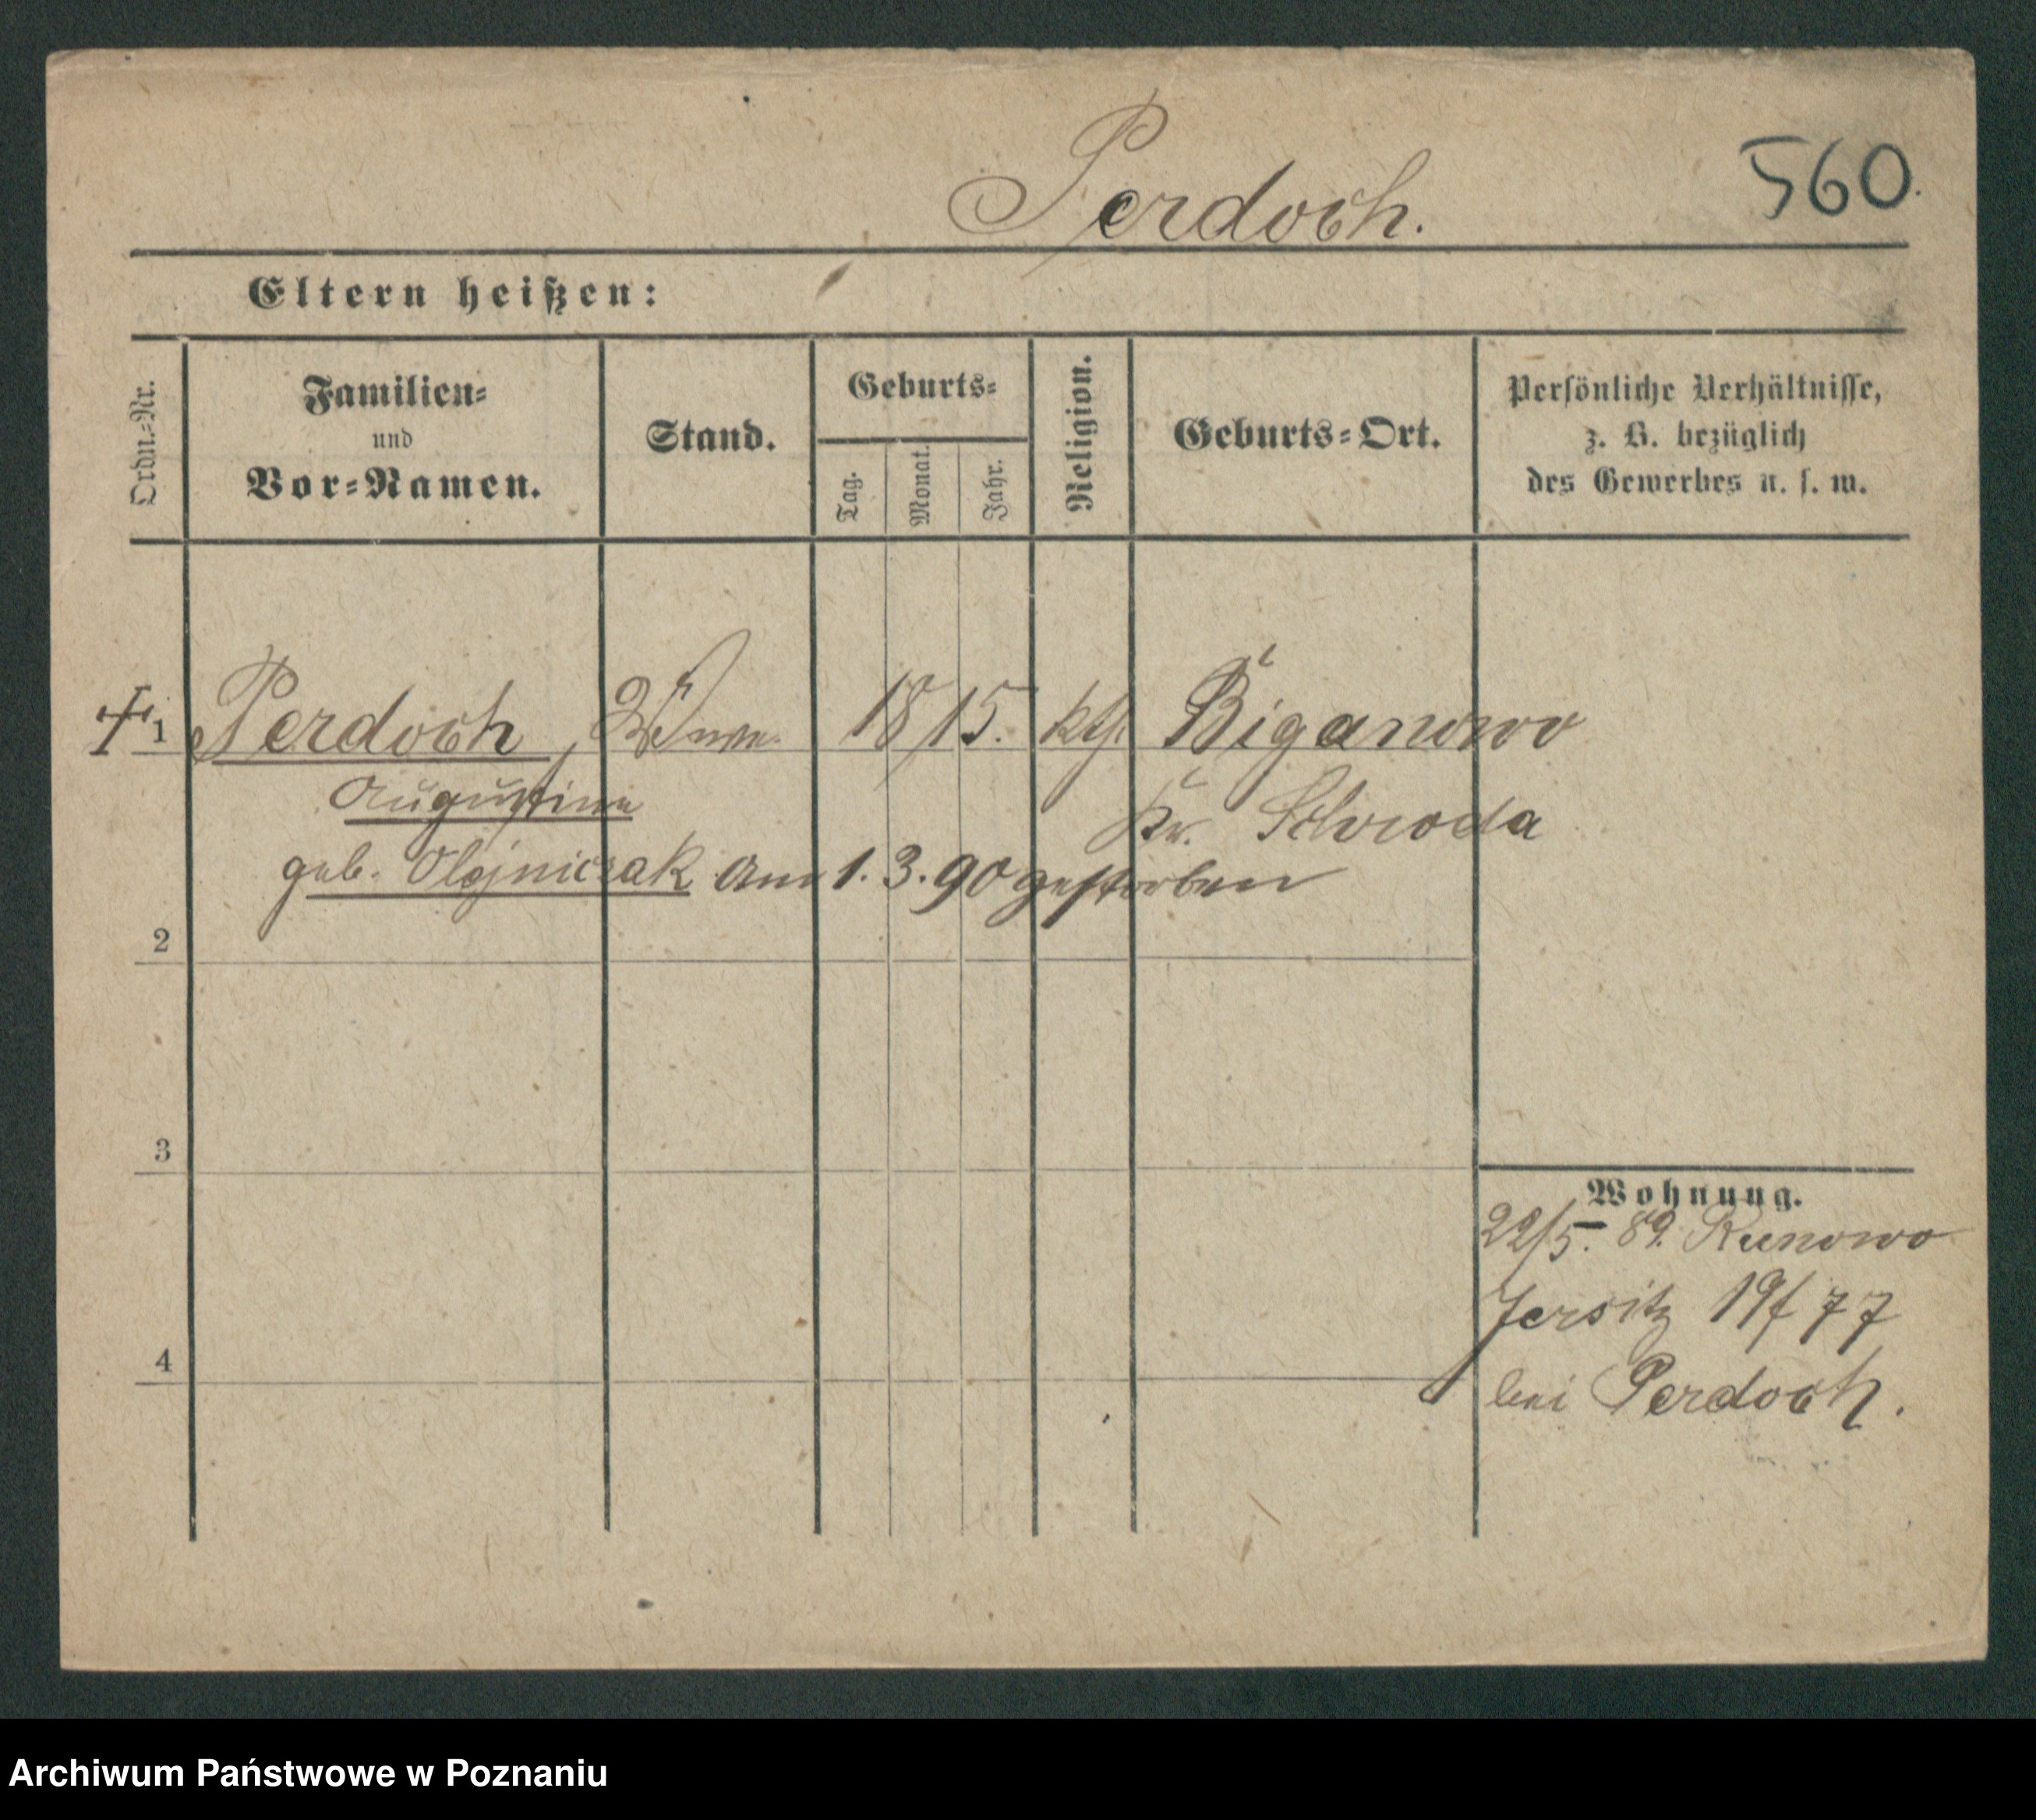 560.
Perdoch.
Eltern heißen:
Ordn.-Nr.
Familien-
und
Vor-Namen.
Stand.
Geburts-
Tag.
Monat.
Jahr.
Religion.
Geburts-Ort.
Persönliche Verhältnisse,
z. B. bezüglich
des Gewerbes u. s. w.
1 Perdoch, Wwe. 18/15. kth. Biganowo
Augustine Kr. Schroda
geb. Olejniczak am 1. 3. 90 gestorben
2
3
4
Wohnung.
22/5. 89. Kunowo
Jersitz 19f 77
bei Perdoch.
Archiwum Państwowe w Poznaniu